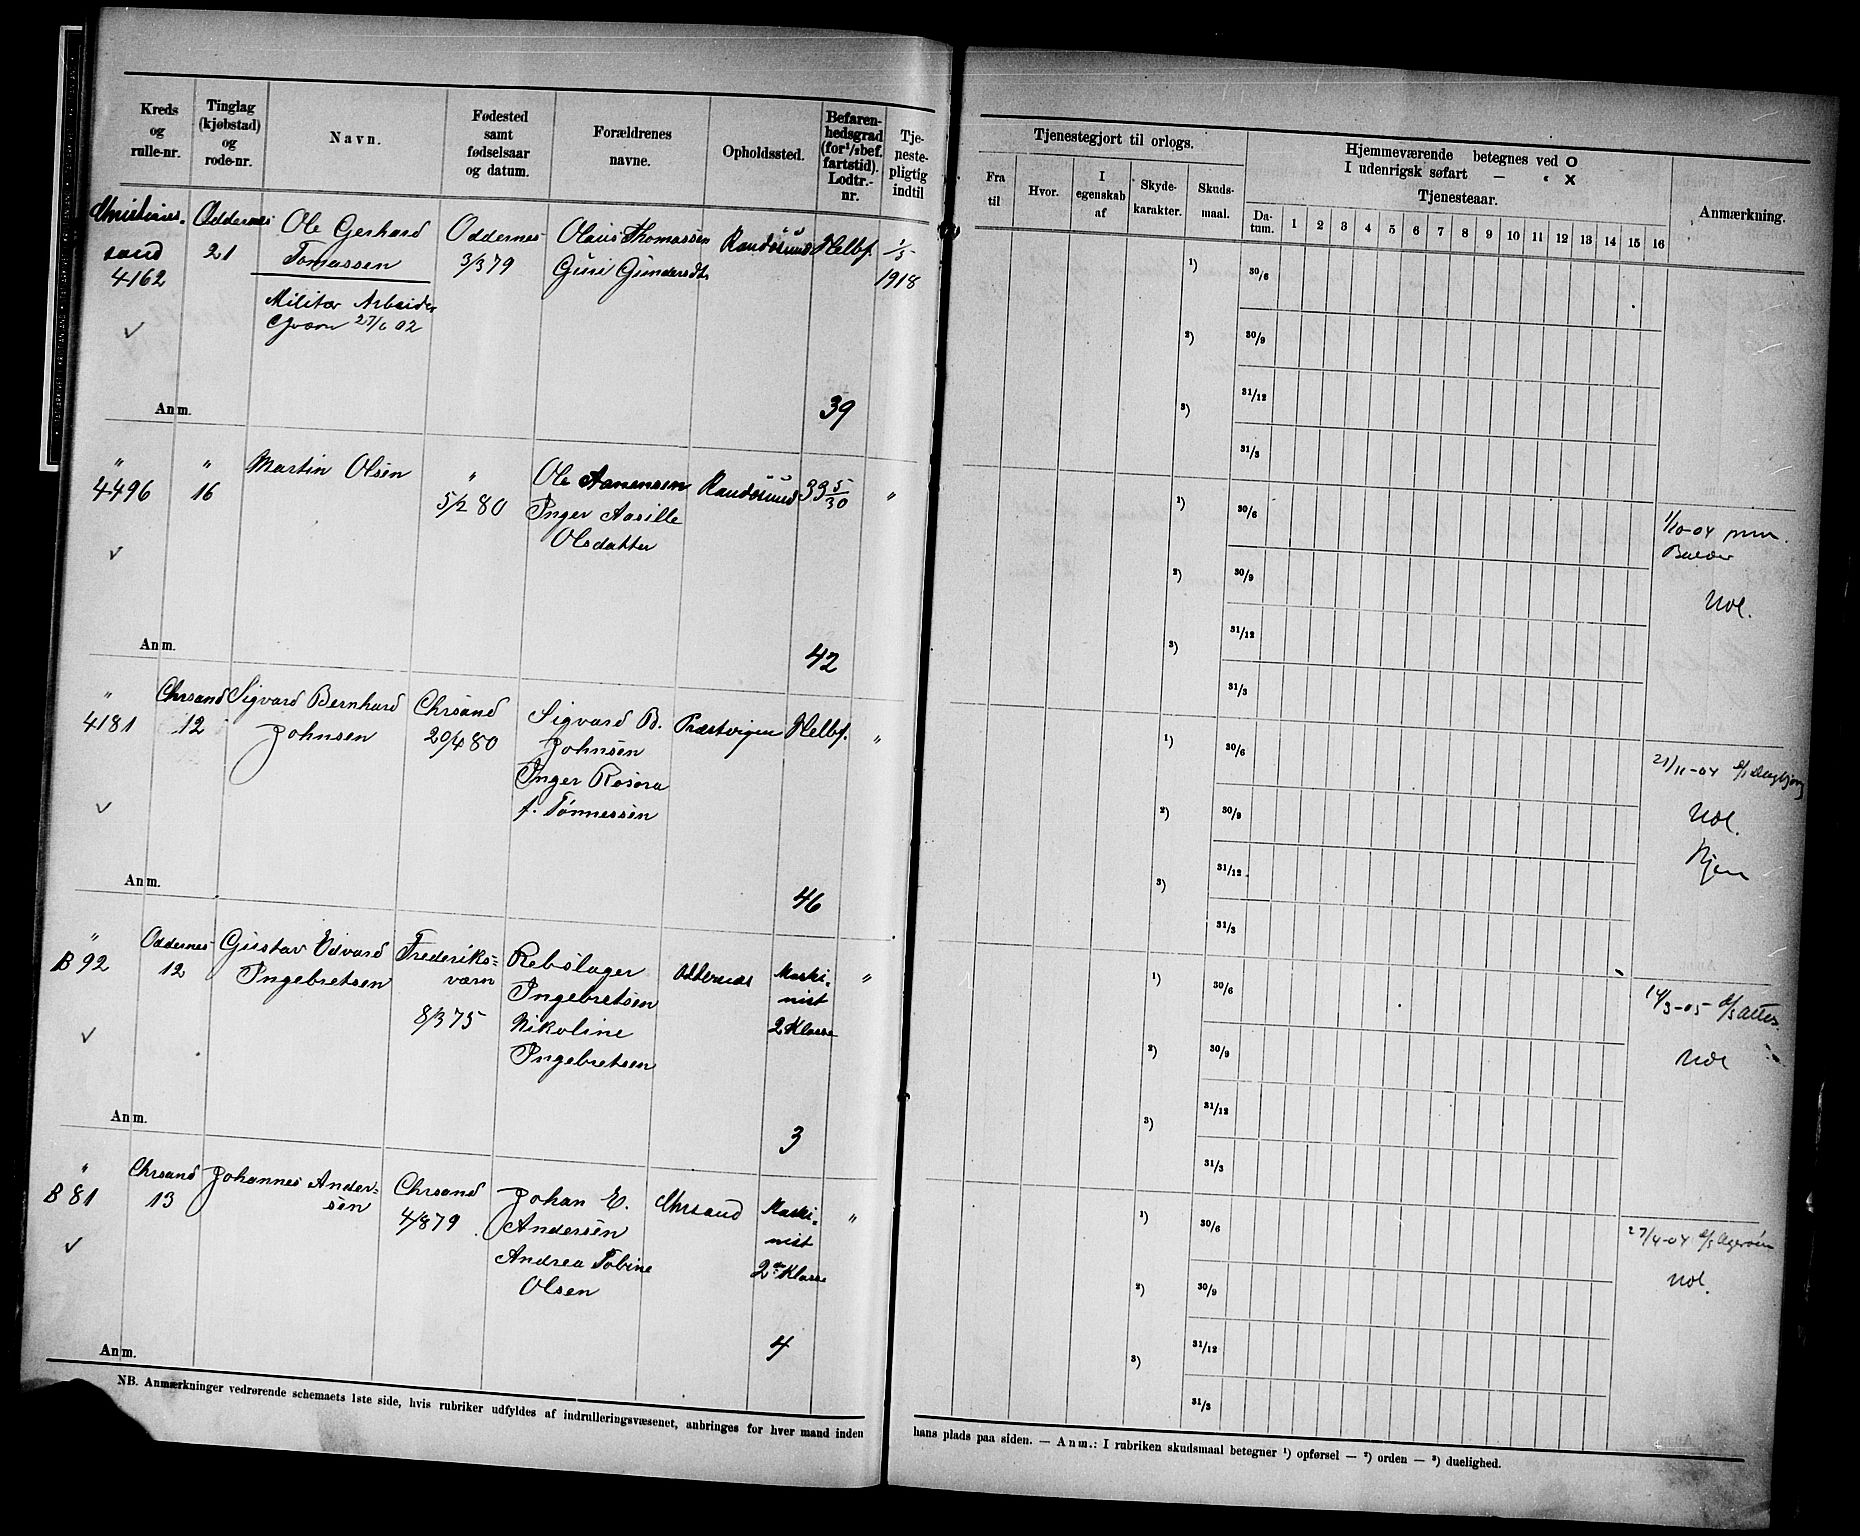 Kreds
og
rulle-nr.
Tinglag
(kjøbstad)
og
rode-nr.
Navn.
Fødested
samt
fødselsaar
og datum.
Forældrenes
navne.
Opholdssted.
Befaren-
hedsgrad
(for 1/2 bef.
fartstid).
Lodtr.-
nr.
Tje-
neste-
pligtig
indtil
Tjenestegjort til orlogs.
Fra
til
Hvor.
I
egenskab
af
Skyde-
karakter.
Skuds-
maal.
Hjemmeværende betegnes ved O
I udenrigsk søfart — " X
Tjenesteaar.
Da-
tum.
1 2 3 4 5 6 7 8 9 10 11 12 13 14 15 16
Anmærkning.
Christians-
sand
4162
Oddernes
21
Ole Gerhard
Tomassen
Militær Arbeider
27/6 02
Oddernes
3/3 79
Olaus Thomassen
Guri Gundersdtr
Randøsund
Helbf.
1/5
1918
Anm.
39
1)
2)
3)
30/6
30/9
31/12
31/3
"
4496
"
16
Martin Olsen
"
5/2 80
Ole Aanensen
Inger Aasille
Olsdatter
Randøsund
33 5/30
"
Anm.
42
1)
2)
3)
30/6
30/9
31/12
31/3
1/10-04
Balder
Udl.
"
4181
Chrsand
12
Sigvard Bernhard
Johnsen
Chrsand
20/4 80
Sigvard B.
Johnsen
Inger Rosora
f. Tønnessen
Præstvigen
Helbf.
"
Anm.
46
1)
2)
3)
30/6
30/9
31/12
31/3
21/11-04
Udl.
Hjem
"
B 92
Oddernes
12
Gustav Edvard
Ingebretsen
Frederiks=
værn
8/3 75
Rebslager
Ingebretsen
Nikoline
Ingebretsen
Oddernes
Maski-
nist
2 Klasse
"
Anm.
3
1)
2)
3)
30/6
30/9
31/12
31/3
14/3-05 d/s
Udl
"
B 81
Chrsand
13
Johannes Ander=
sen
Chrsand
4/8 79
Johan E.
Andersen
Andrea Tobine
Olsen
Chrsand
Maski-
nist
2de Klasse
"
Anm.
4
1)
2)
3)
30/6
30/9
31/12
31/3
27/4-04 d/s
Udl.
NB. Anmærkninger vedrørende schemaets 1ste side, hvis rubriker udfyldes af indrulleringsvæsenet, anbringes for hver mand inden
hans plads paa siden. — Anm.: I rubriken skudsmaal betegner 1) opførsel — 2) orden — 3) duelighed.